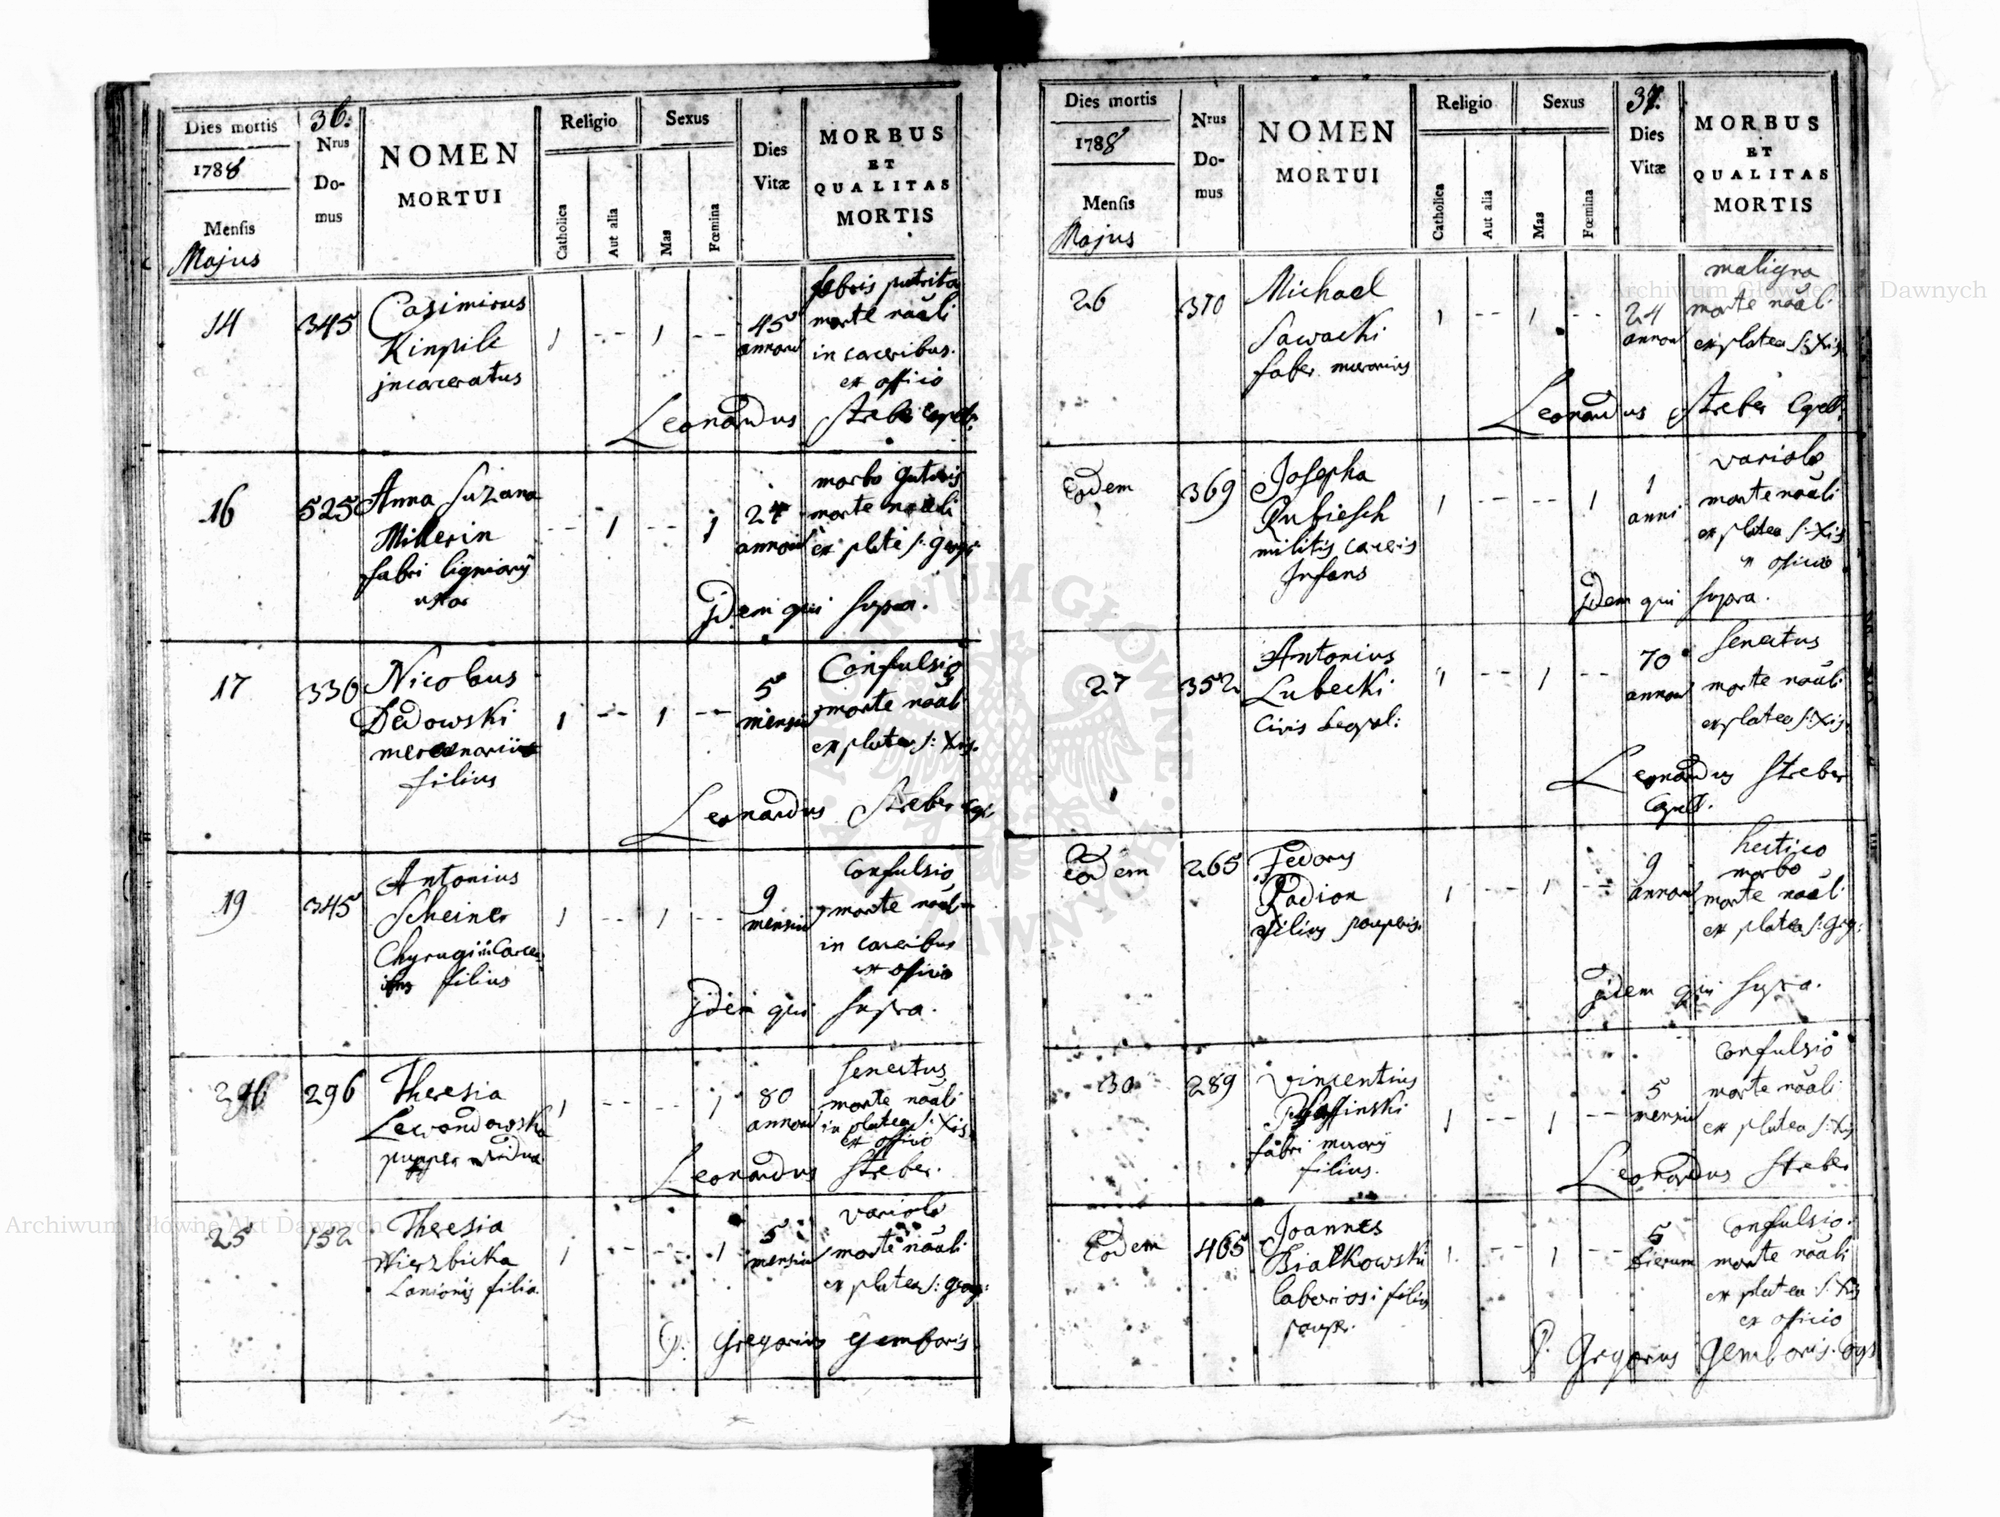 36.
Dies mortis
1788
Mensis
Majus
Nrus
Do-
mus
NOMEN
MORTUI
Religio
Catholica
Aut alia
Sexus
Mas
Fœmina
Dies
Vitæ
MORBUS
ET
QUALITAS
MORTIS
14
345
Casimirus
incarceratus
1 -- 1 --
45
annorum
febris putrida
morte nãali
in carceribus
ex officio
Leonardus Streber Capell:
16
525
Anna Suzana
Millerin
fabri lignarij
uxor
-- 1 -- 1
24
annorum
morbo guturis
morte nãali
ex platea S: Georg:
jdem qui supra.
17
330
Nicolaus
Dedowski
mercenarii
filius
1 -- 1 --
5
mensium
Confulsio
morte nãali
ex platea S: Xis.
Leonardus Streber
19
345
Antonius
Scheiner
Chyrugi in Carcer
ibus filius
1 -- 1 --
9
mensium
Confulsio
morte nãali
in carceribus
ex officio
jdem qui supra.
296
Theresia
Lewandowska
pauper vidua
1 -- -- 1
80
annorum
Senectus
morte nãali
in platea S: Xis.
ex officio
Leonardus Streber.
25
152
Theresia
Wierzbicka
Lanionis filia
1 -- -- 1
5
mensium
variola
morte nãali
ex platea S: Georg:
P: Gregorius Gemboris.
37.
Dies mortis
1788
Mensis
Majus
Nrus
Do-
mus
NOMEN
MORTUI
Religio
Catholica
Aut alia
Sexus
Mas
Fœmina
Dies
Vitæ
MORBUS
ET
QUALITAS
MORTIS
26
370
Michael
Sawacki
faber murarius
1 -- 1 --
24
annorum
maligna
morte nãali
ex platea S: Xis.
Leonardus Streber Capell:
Eodem
369
Josepha
militis carceris
Infans
1 -- -- 1
1
anni
variola
morte nãali
ex platea S: Xis
ex officio
jdem qui supra.
27
352
Antonius
Lubecki
Civis Leopol:
1 -- 1 --
70
annorum
Senectus
morte nãali
ex platea S: Xis.
Leonardus Streber
Capell.
Eodem
265
Fedorus
Radion
filius pauperis.
1 -- 1 --
9
annorum
hectico
morbo
morte nãali
ex platea S: Geog:
jdem qui supra.
30
289
Vincentius
fabri murarij
filius.
1 -- 1 --
5
mensium
Confulsio
morte nãali
ex platea S: Xis
Leonardus Streber
Eodem
465
Joannes
Białkowski
laboriosi filius
pauper.
1 -- 1 --
5
dierum
Confulsio.
morte nãali
ex platea S: Xis
ex officio
P. Gregorius Gemboris.
Archiwum Główne Akt Dawnych
Archiwum Główne Akt Dawnych
ARCHIWUM GŁÓWNE AKT DAWNYCH